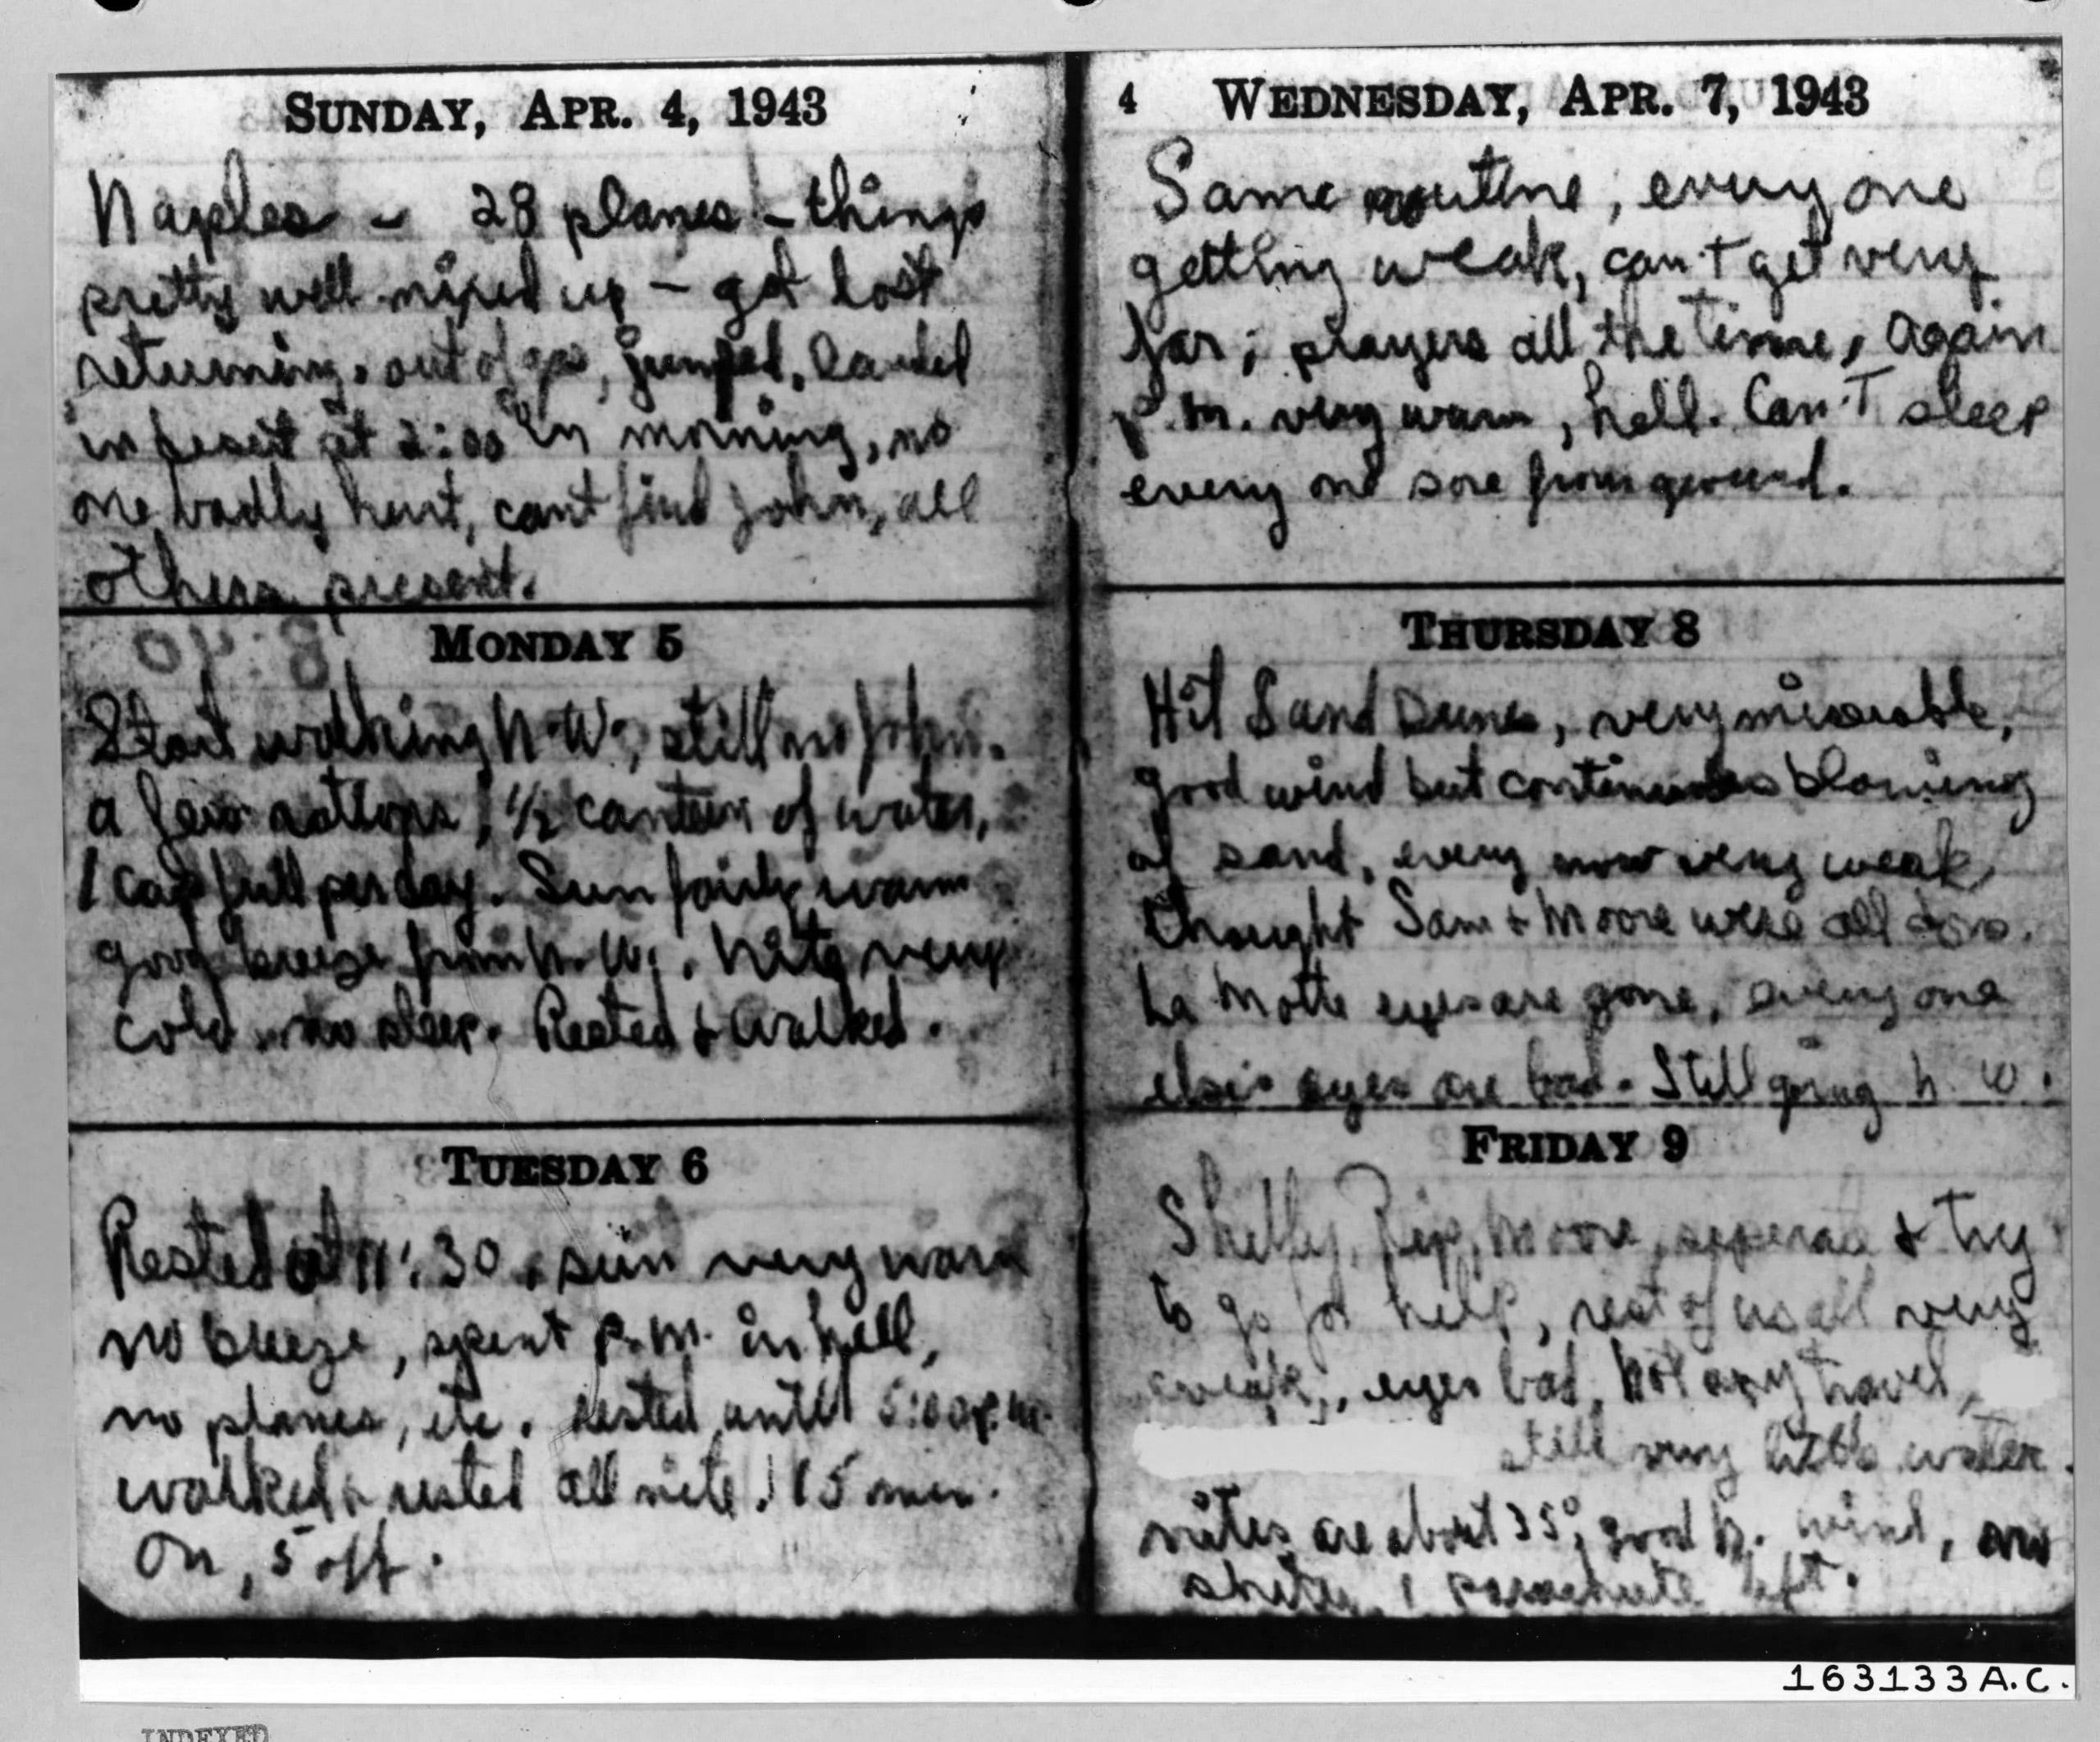 SUNDAY, APR. 4, 1943
Naples - 28 planes - things
pretty well mixed up - got lost
returning, out of gas, jumped, landed
in desert at 2:00 in morning, no
one badly hurt, cant find John, all
others present.
MONDAY 5
Start walking N.W., still no John.
a few rations, 1/2 canteen of water,
1 cap full per day. Sun fairly warm
good breeze from N.W. Nite very
cold, no sleep. Rested & walked.
TUESDAY 6
Rested at 11:30, sun very warm
no breeze, spent P.M. in hell,
no planes, etc. rested until 5:00 p.m.
walked & rested all nite. 15 min.
on, 5 off.
4 WEDNESDAY, APR. 7, 1943
Same routine, every one
getting weak, can't get very
far, prayers all the time, again
p.m. very warm, hell. Can't sleep
every one sore from ground.
THURSDAY 8
Hit Sand Dunes, very miserable,
good wind but continuous blowing
of sand, every now very weak
thought Sam & Moore were all done.
La Motte eyes are gone, every one
else's eyes are bad. Still going N.W.
FRIDAY 9
Shelly, Rip, Moore, seperate & try
to go for help, rest of us all very
weak, eyes bad, Not any travel,
still very little water.
nites are about 35°, good N. wind, no
shelter, 1 parachute left.
163133 A.C.
INDEXED